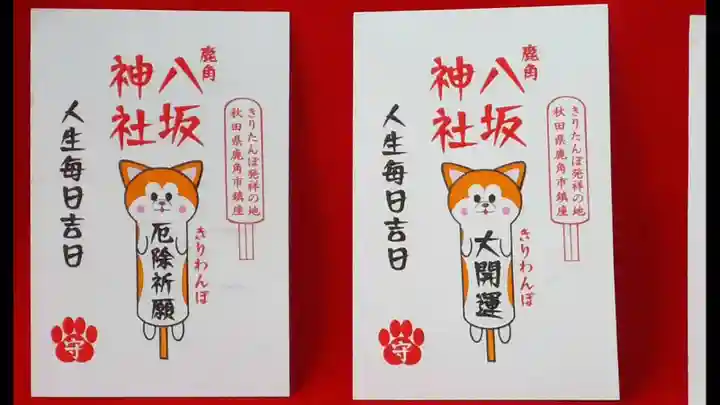 きりたんぽ発祥の地
秋田県鹿角市鎮座
鹿角
八坂
神社
人生毎日吉日
きりわんぽ
厄除祈願
守
きりたんぽ発祥の地
秋田県鹿角市鎮座
鹿角
八坂
神社
人生毎日吉日
きりわんぽ
大開運
守